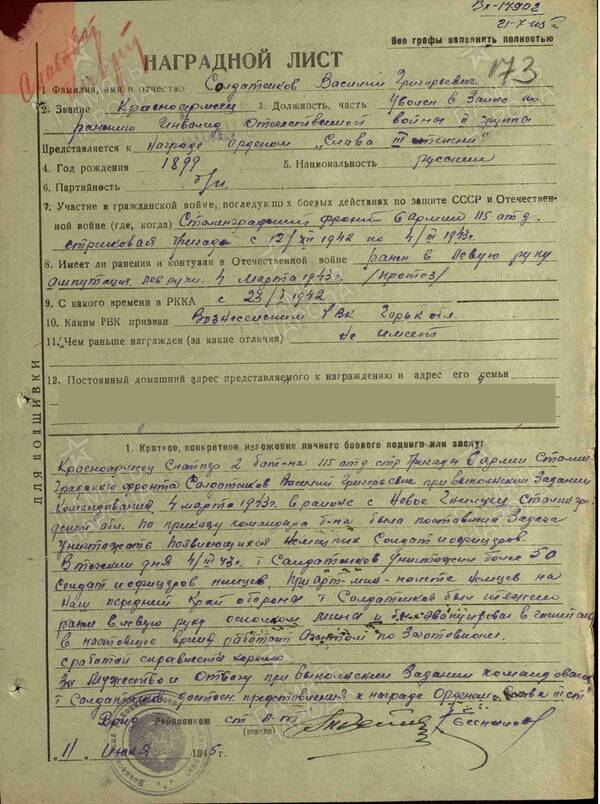 Вх-17902
21-7-45г
Все графы заполнять полностью
НАГРАДНОЙ ЛИСТ
173
1. Фамилия, имя и отчество Солдатенков Василий Григорьевич
2. Звание Красноармеец 3. Должность, часть Уволен в Запас по
ранению Инвалид Отечественной войны II группы
Представляется к Награде орденом „Слава III степени"
4. Год рождения 1899 5. Национальность русский
6. Партийность б/п.
7. Участие в гражданской войне, последующих боевых действиях по защите СССР и Отечествен-
ной войне (где, когда) Сталинградский фронт 6 армии 115 отд.
стрелковая бригада с 12/XII 1942 по 4/III 1943г.
8. Имеет ли ранения и контузии в Отечественной войне ранен в левую руку
ампутация лев руки. 4 марта 1943г. /протез/
9. С какого времени в РККА с 23/I 1942
10. Каким РВК призван Вознесенским РВК Горьк обл.
11. Чем раньше награжден (за какие отличия) Не имеет
12. Постоянный домашний адрес представляемого к награждению и адрес его семьи
ДЛЯ ПОДШИВКИ
1. Краткое, конкретное изложение личного боевого подвига или заслуг
Красноармеец Снайпер 2 бат-на 115 отд стр бригады 6 армии Сталин
градского фронта Солдатенков Василий Григорьевич при выполнении Задания
Командования 4 марта 1943г. в районе с Новое Сталинград
дской обл. по приказу командира б-на была поставлена Задача
Уничтожать появляющихся немецких Солдат и офицеров.
В течении дня 4/III 43г. т Солдатенков Уничтожил более 50
солдат и офицеров немцев. При арт-мин-налете немцев на
наш передний Край обороны т Солдатенков был тяжело
ранен в левую руку осколком мины и был эвакуирован в госпиталь
в настоящее время работает Агентом по Заготовкам.
с работой справляется хорошо
За Мужество и Отвагу при выполнении Задания командования
т Солдатенков достоен представления к награде Орденом Слава III ст
Райвоенком ст л-т
(звание)
11 Июля 1945г.